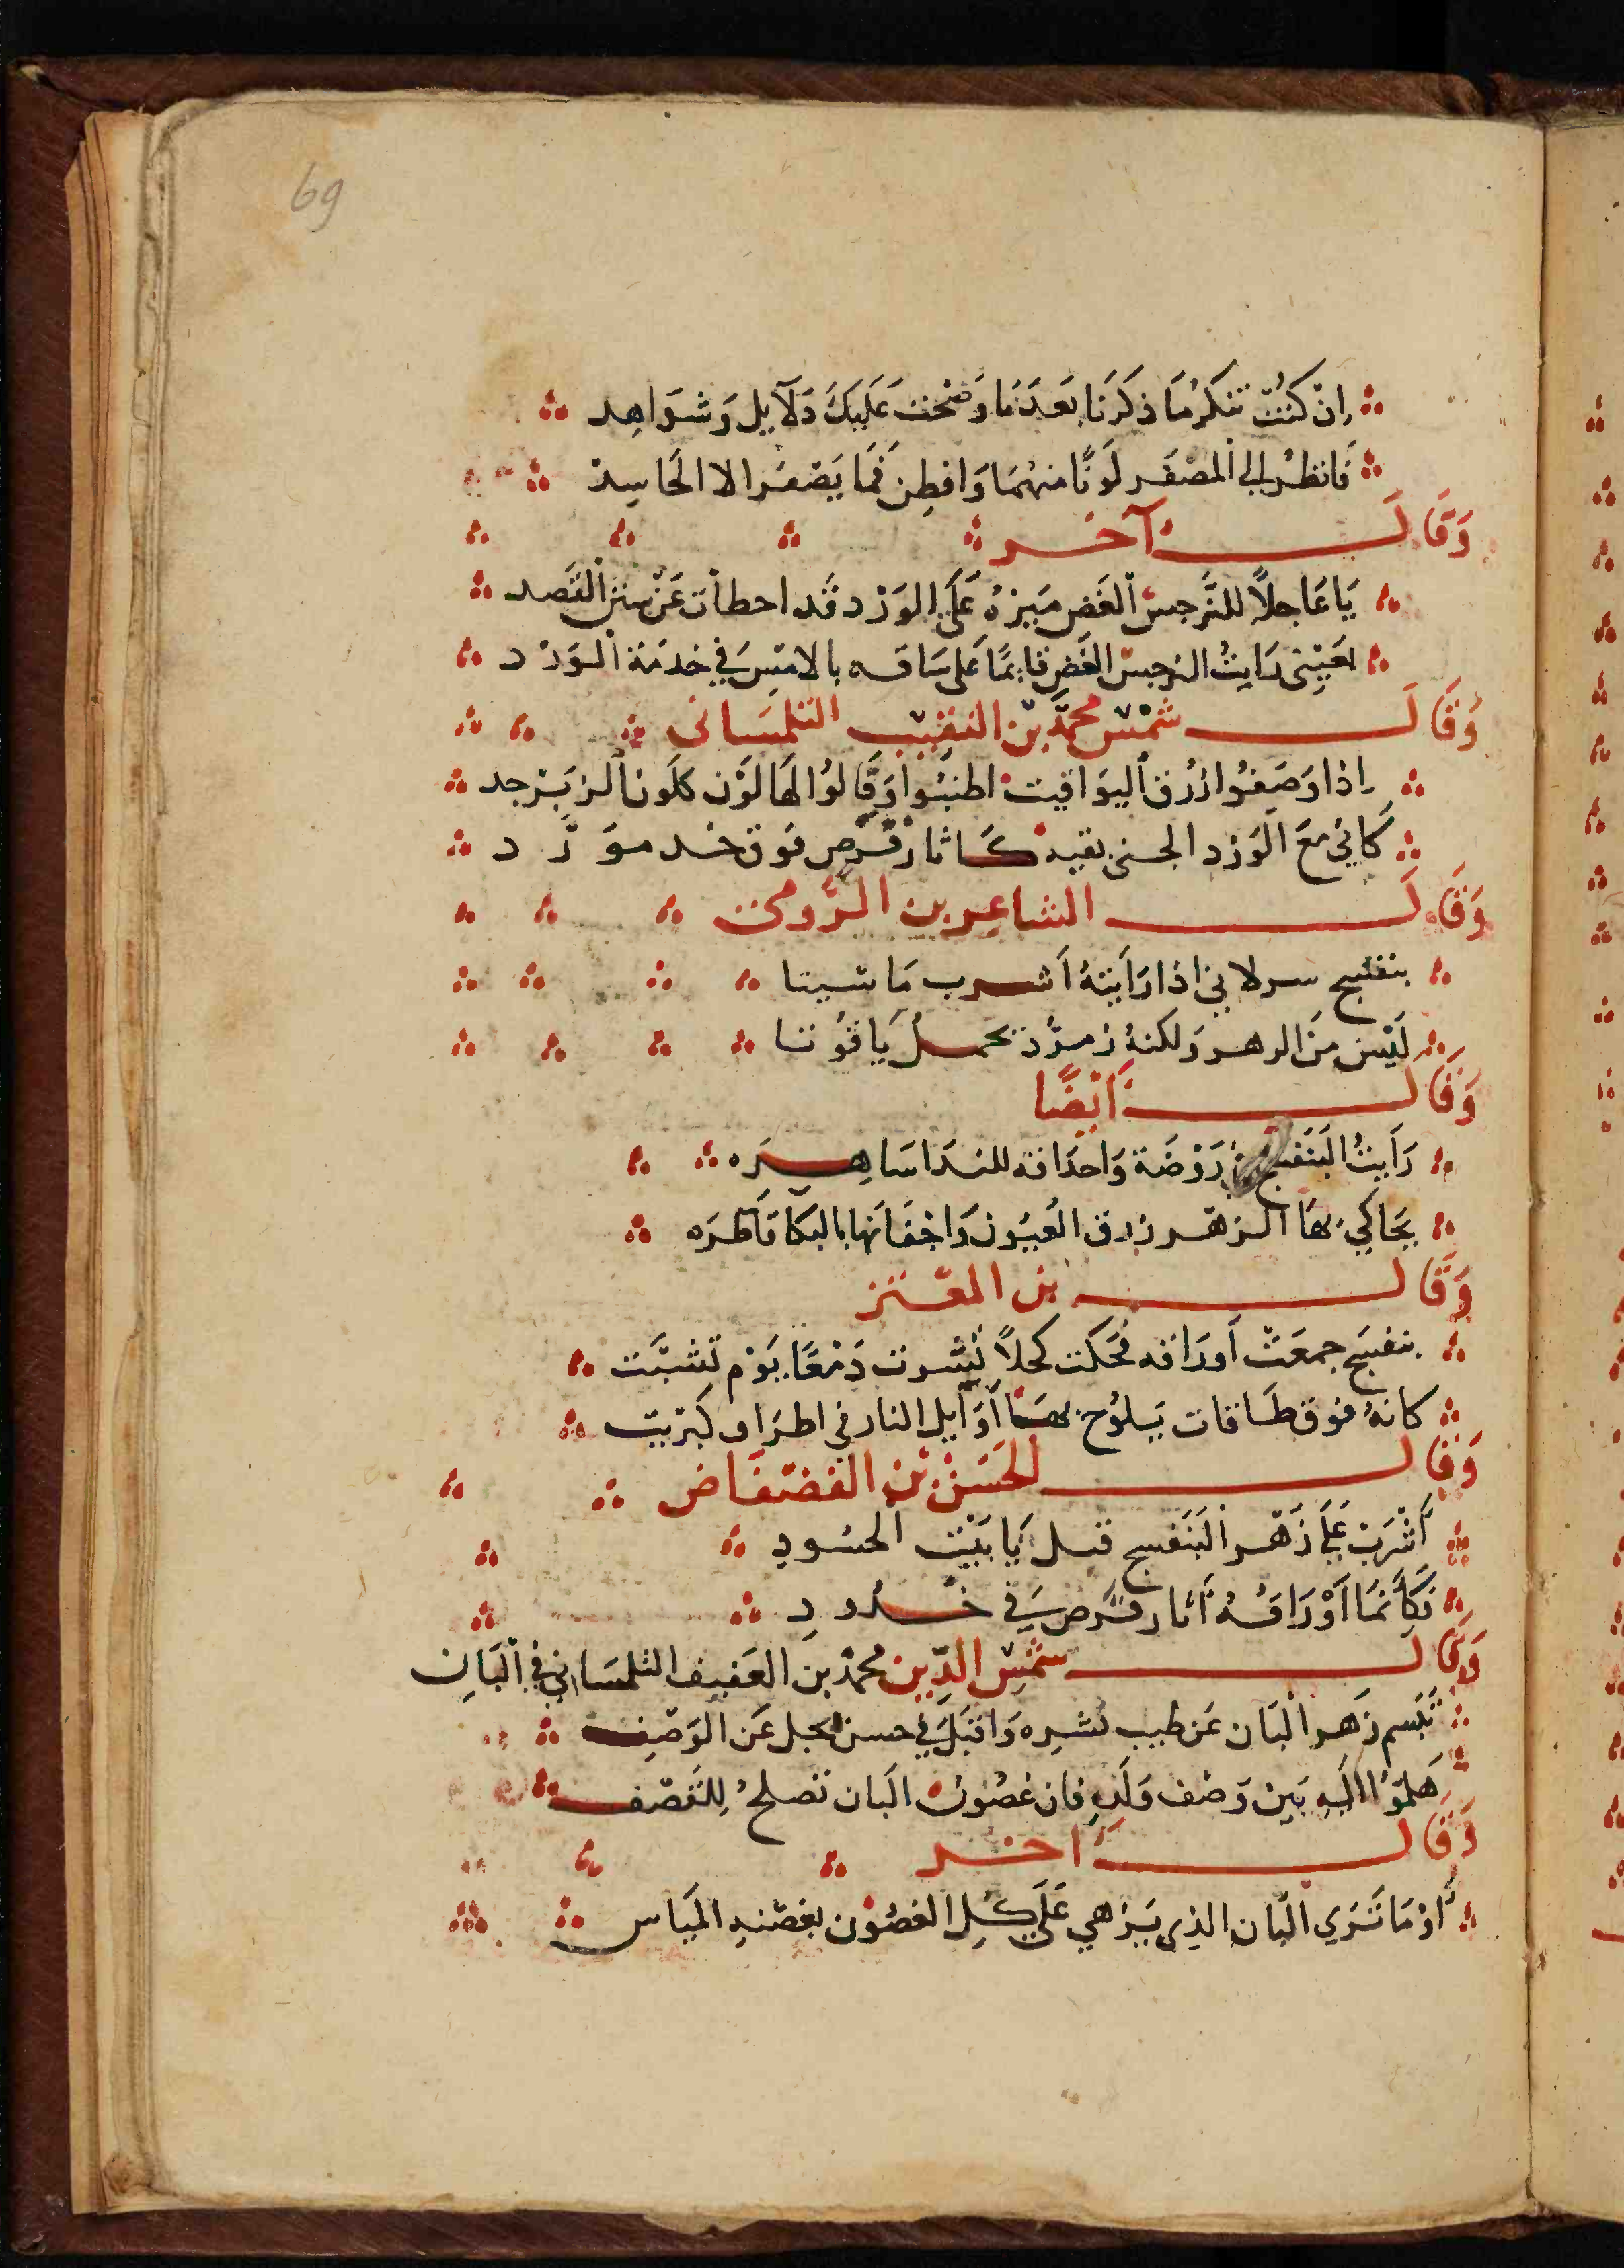 69
ان كنت تنكر ما ذكرنا بعدما وضحت عليك دلايل وشواهد
فانظر الى المصفر لونًا منهما وافطن فما يصفر الا الحاسد
وقال آخر
يا عاجلاً للنرجس الغض ميزه على الورد قد اخطات عن سنن القصد
بعيني رايت النرجس الغض قايمًا على ساقه بالامس في خدمة الورد
وقال شمس محمد بن النقيب التلمساني
اذا وصفوا ازرق اليواقيت اطنبوا وقالوا لها لون كلون الزبرجد
كاني مع الورد الجني بقيه كاثار قرص فوق خد مورد
وقال الشاعر بن الرومى
بنفسج سر لاني اذا رايته اشرب ما شيتا
ليس من الرهر ولكنه زمرد يحمل ياقوتا
وقال ايضًا
رايت البنفسج روضة واحداقه للندا ساهره
يحاكي بها الزهر زرق العيون واجفانها بالبكا قاطره
وقال بن المعتز
بنفسج جمعت أوراقه فحكت كحلاً تشرب دمعًا يوم تشتت
كانه فوق طاقات يلوح بها أوايل النار في اطراف كبريت
وقال الحسن بن الفضفاض
أشرب على زهر البنفسج قبل يا بيت الحسود
فكأنما أوراقه أثار قرص في خدود
وقال شمس الدين محمد بن العفيف التلمساني في البان
تبسم زهر البان عن طيب نشره واقبل في حسن يجل عن الوصف
هلموا اليه بين وصف ولذه فان غصون البان تصلح للقصف
وقال اخر
أو ما ترى البان الذي يزهي على كل الغصون بغصنه المياس